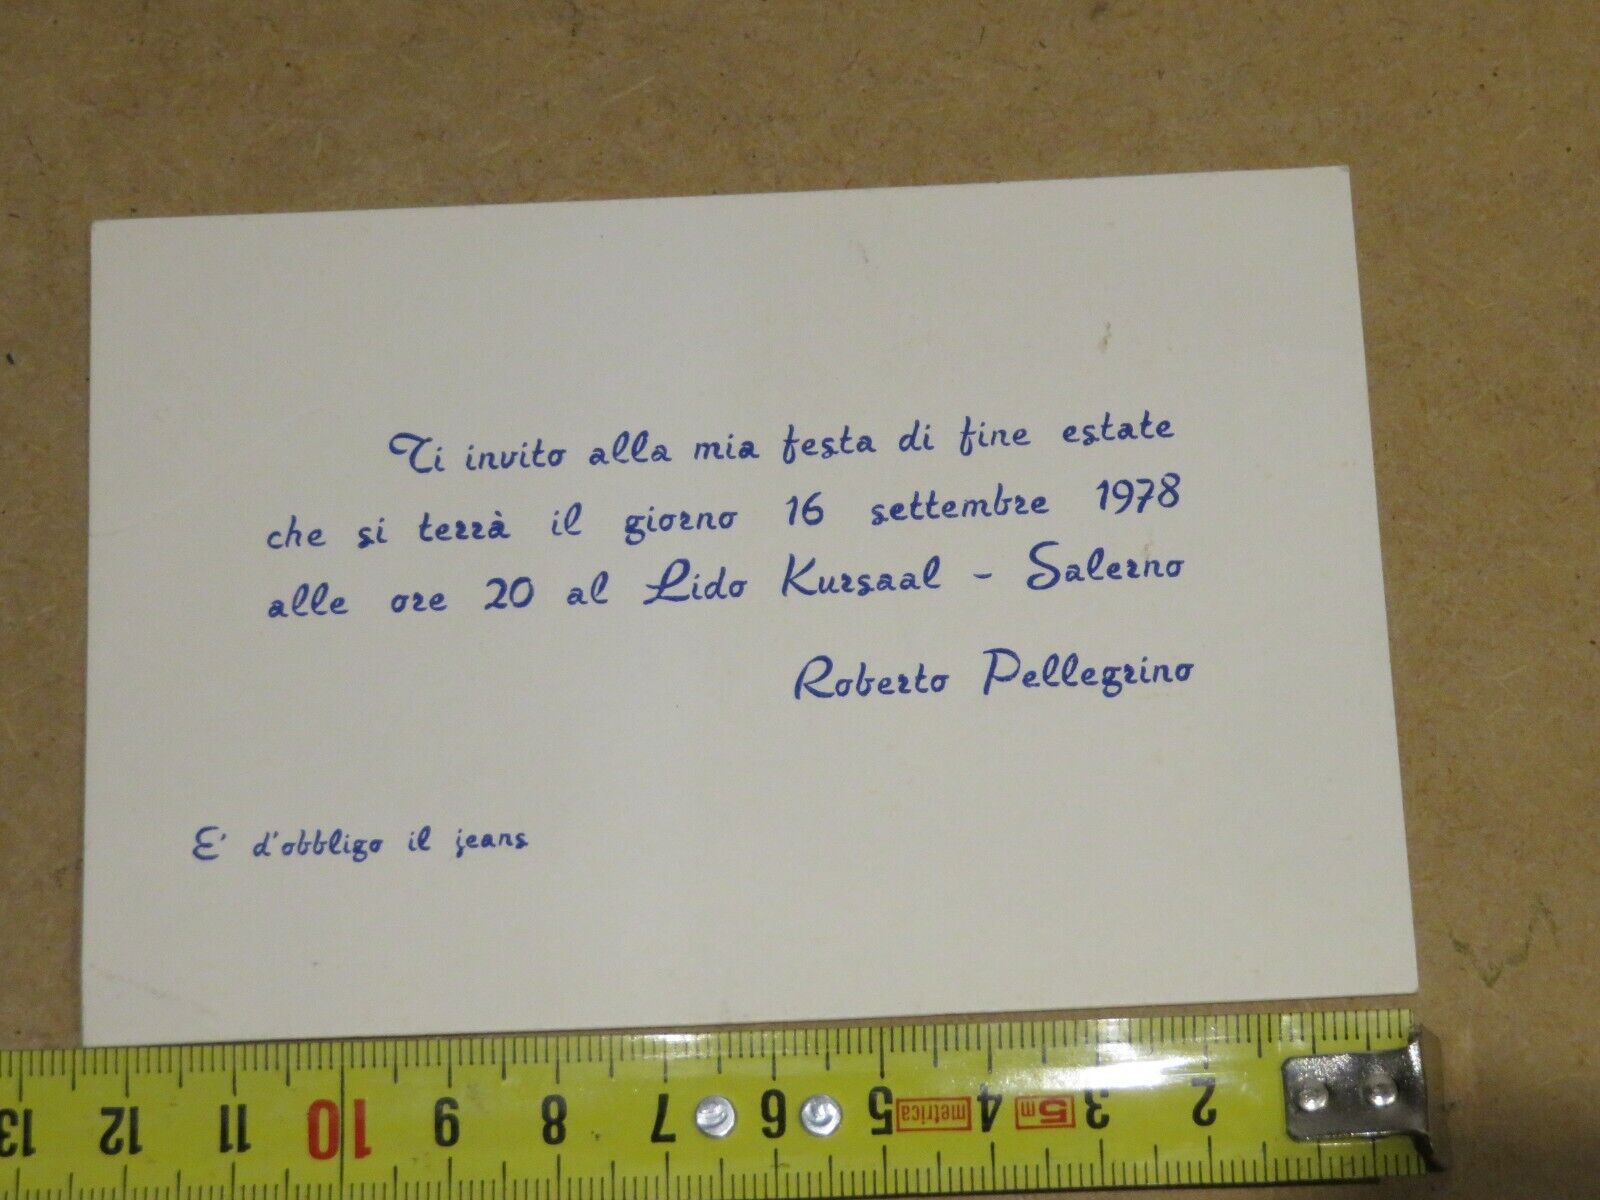 Ti invito alla mia festa di fine estate
che si terrà il giorno 16 settembre 1978
alle ore 20 al Lido Kursaal - Salerno
Roberto Pellegrino
E' d'obbligo il jeans
13 12 11 10 9 8 7 6 5 metrica 4 5m 3 2